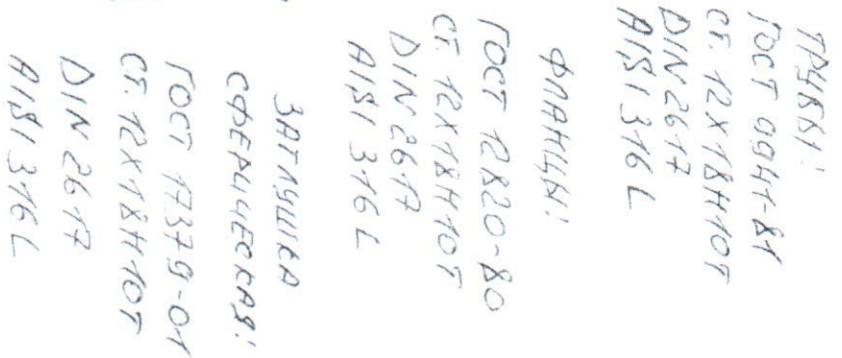 ТРУБЫ:
ГОСТ 9941-81
СТ. 12Х18Н10Т
DIN 2617
AISI 316L
ФЛАНЦЫ:
ГОСТ 12820-80
СТ. 12Х18Н10Т
DIN 2617
AISI 316L
ЗАГЛУШКА
СФЕРИЧЕСКАЯ:
ГОСТ 17379-01
СТ. 12Х18Н10Т
DIN 2617
AISI 316L